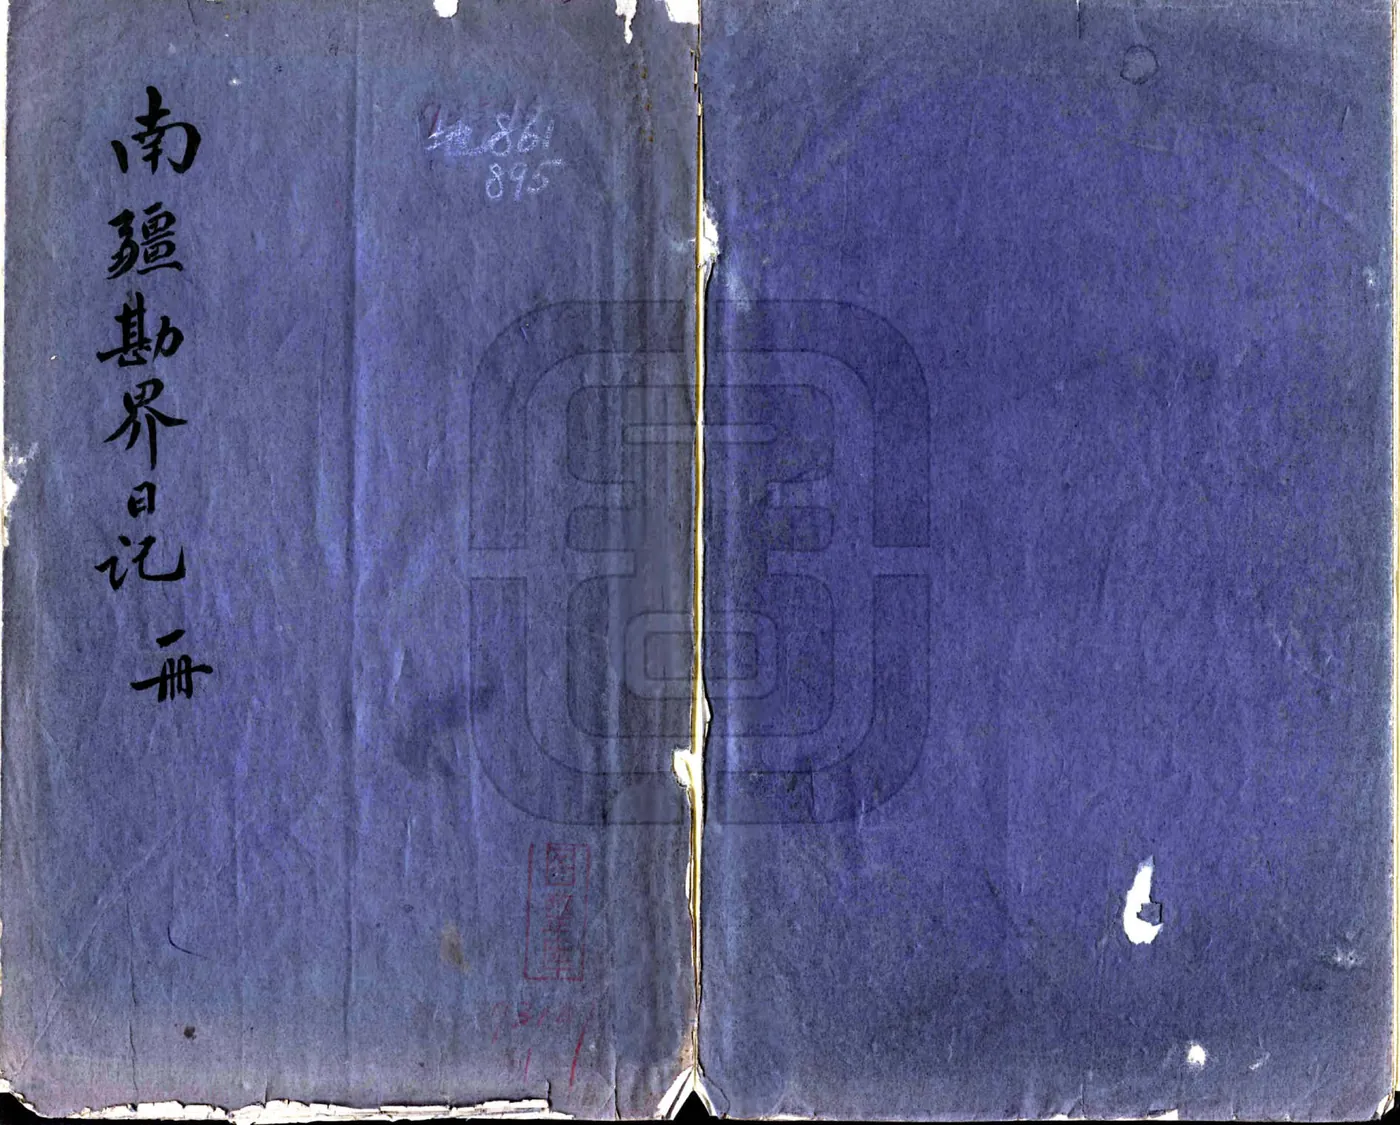 南疆勘界日记 一册
地861
895
图书室